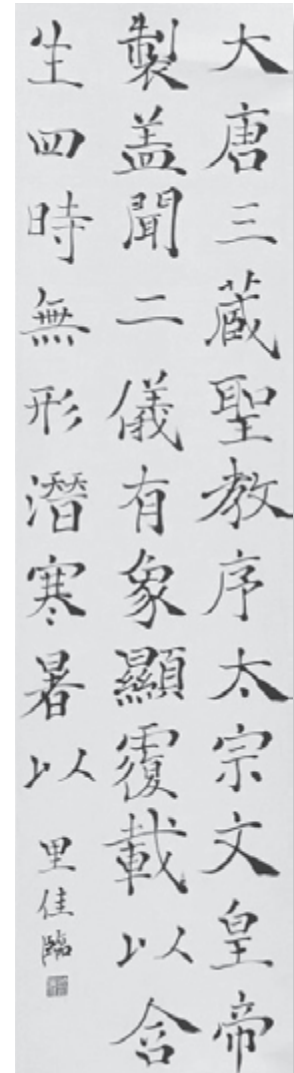 大唐三蔵聖教序太宗文皇帝
製盖聞二儀有象顯覆載以含
生四時無形潛寒暑以
里佳臨